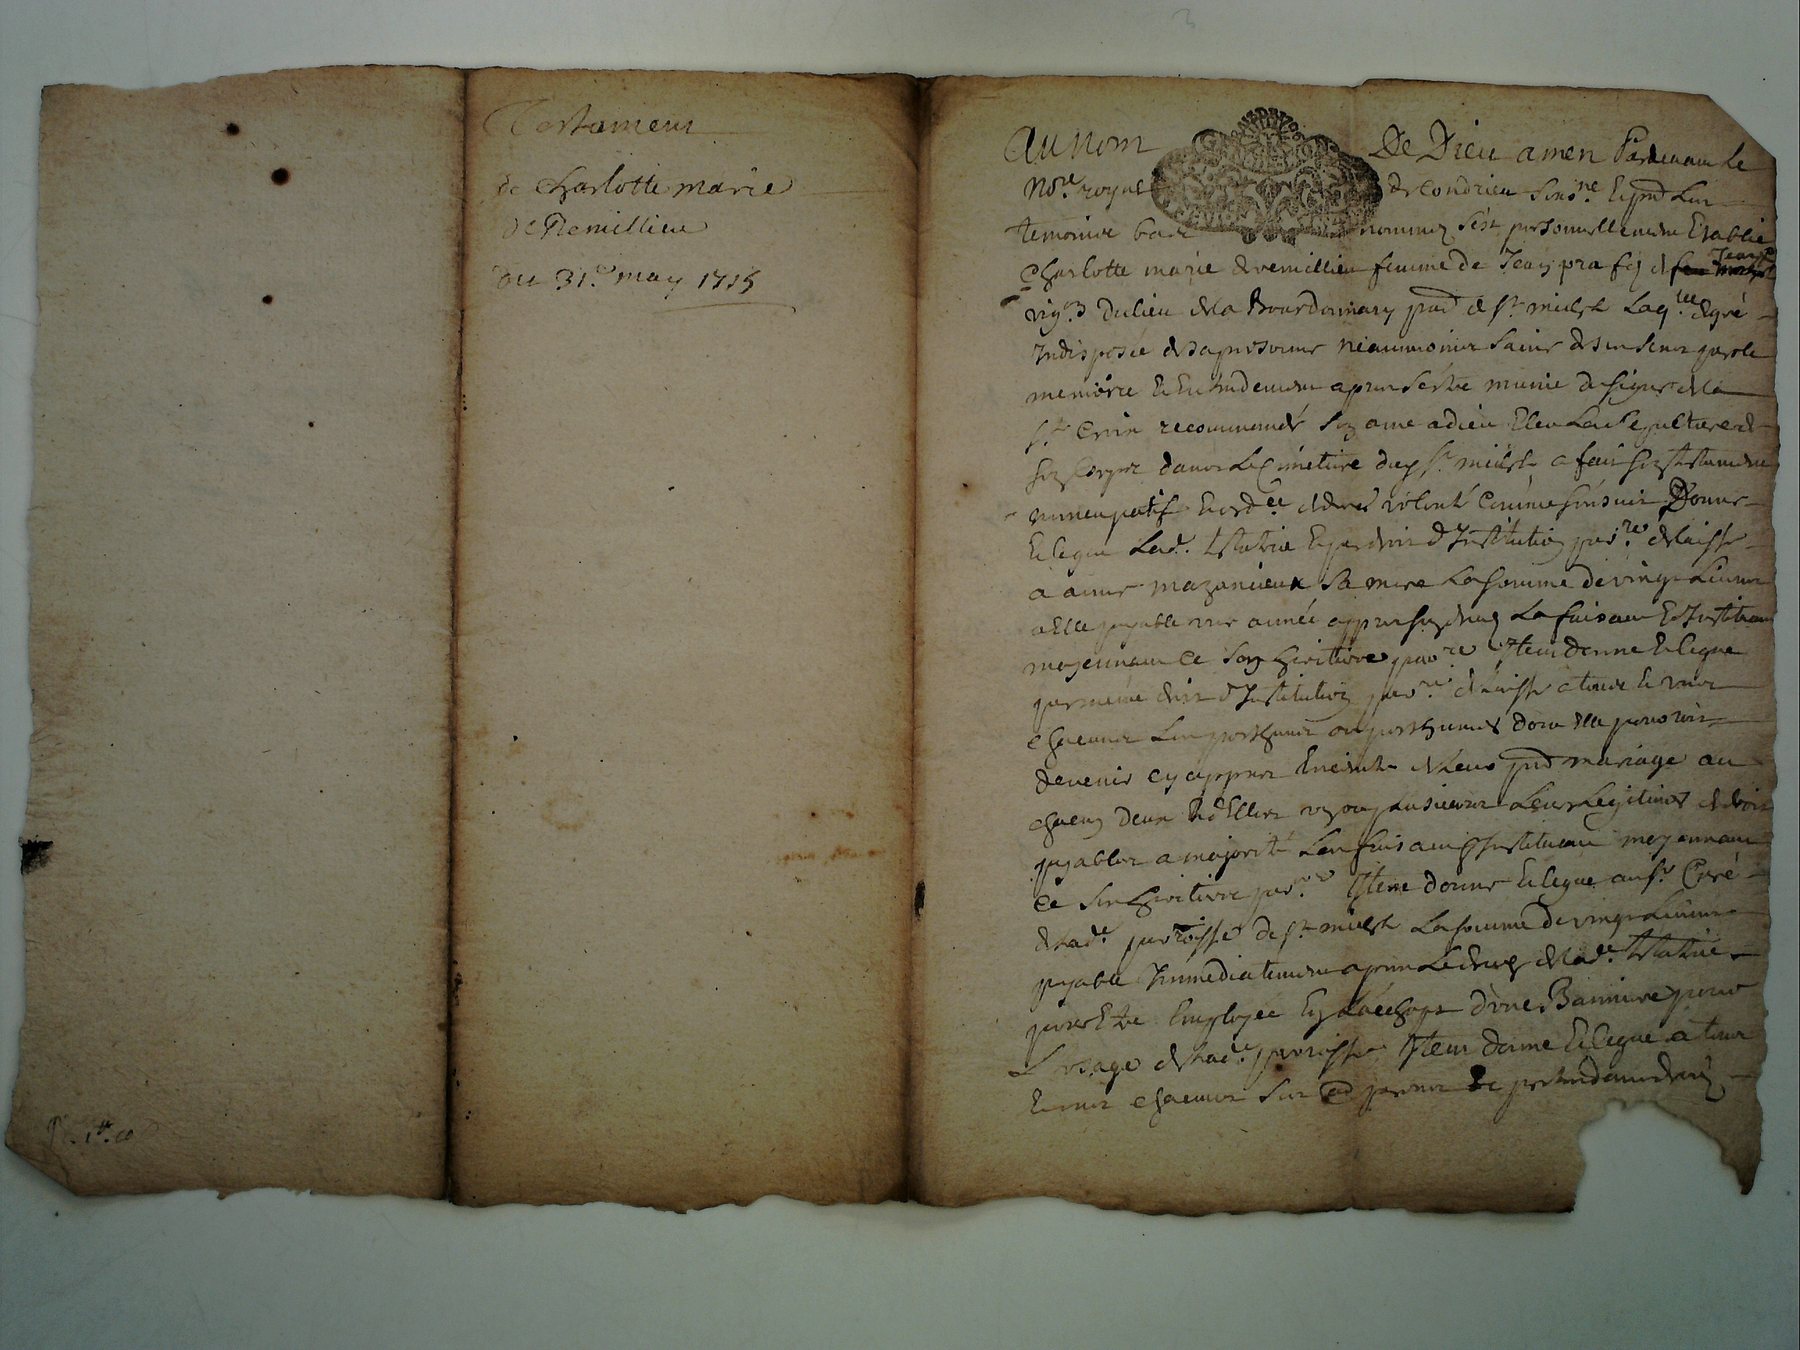 Testament
de Charlotte marie
de Remillieu
du 31e may 1715
Au nom De Dieu amen Pardevant Le
Nore royal de Condrieu Soussne Et pnt Les
temoins bas nommez s'est personnellement Establie
Charlotte marie de remillieu femme de Jean pra fis de feu Jean
vigon du lieu de la Bourdonnary pad de st michel Laqlle de gré
Indisposée de sa personne neanmoins saine de son sens parole
memoire Et Entendement apres s'estre munie du signe de la
ste Croix recommandé son ame a dieu Eleu La sepulture de
son Corps dans Le Cimetiere dud st michel a fait son testament
nuncupatif Et ordce de dere volonté Comme s'ensuit Donne
Et legue Lade testatrice Et par droit d'Institution parre delaisse
a anne mazancieux sa mere La somme de vingt Livres
a Elle payable une année appres son deces La faisant Et Instituant
moyennant ce son heritiere parre Item donne Et legue
par meme droit d'Institution parre delaisse a tous Et uns
chacuns Les posthumes ou posthumes dont Elle pouroit
devenir cy appres Enceinte de leur pnt mariage au
chacun deux Et d'Elles un ou plusieurs Leur Legitime de droit
payables a majorité Les faisant Instituant moyennant
ce ses heritiers parrs Item donne Et legue au sr Curé
de lade parroisse de st michel La somme de vingt Livres
payable Immediatement apres Le deces de lade testatrice
pour Estre Employée En L'achapt d'une Banniere pour
L'usage de lade parroisse Item donne Et legue a tous
Et uns chacuns ses parens Et pretendans droit
1tt 10